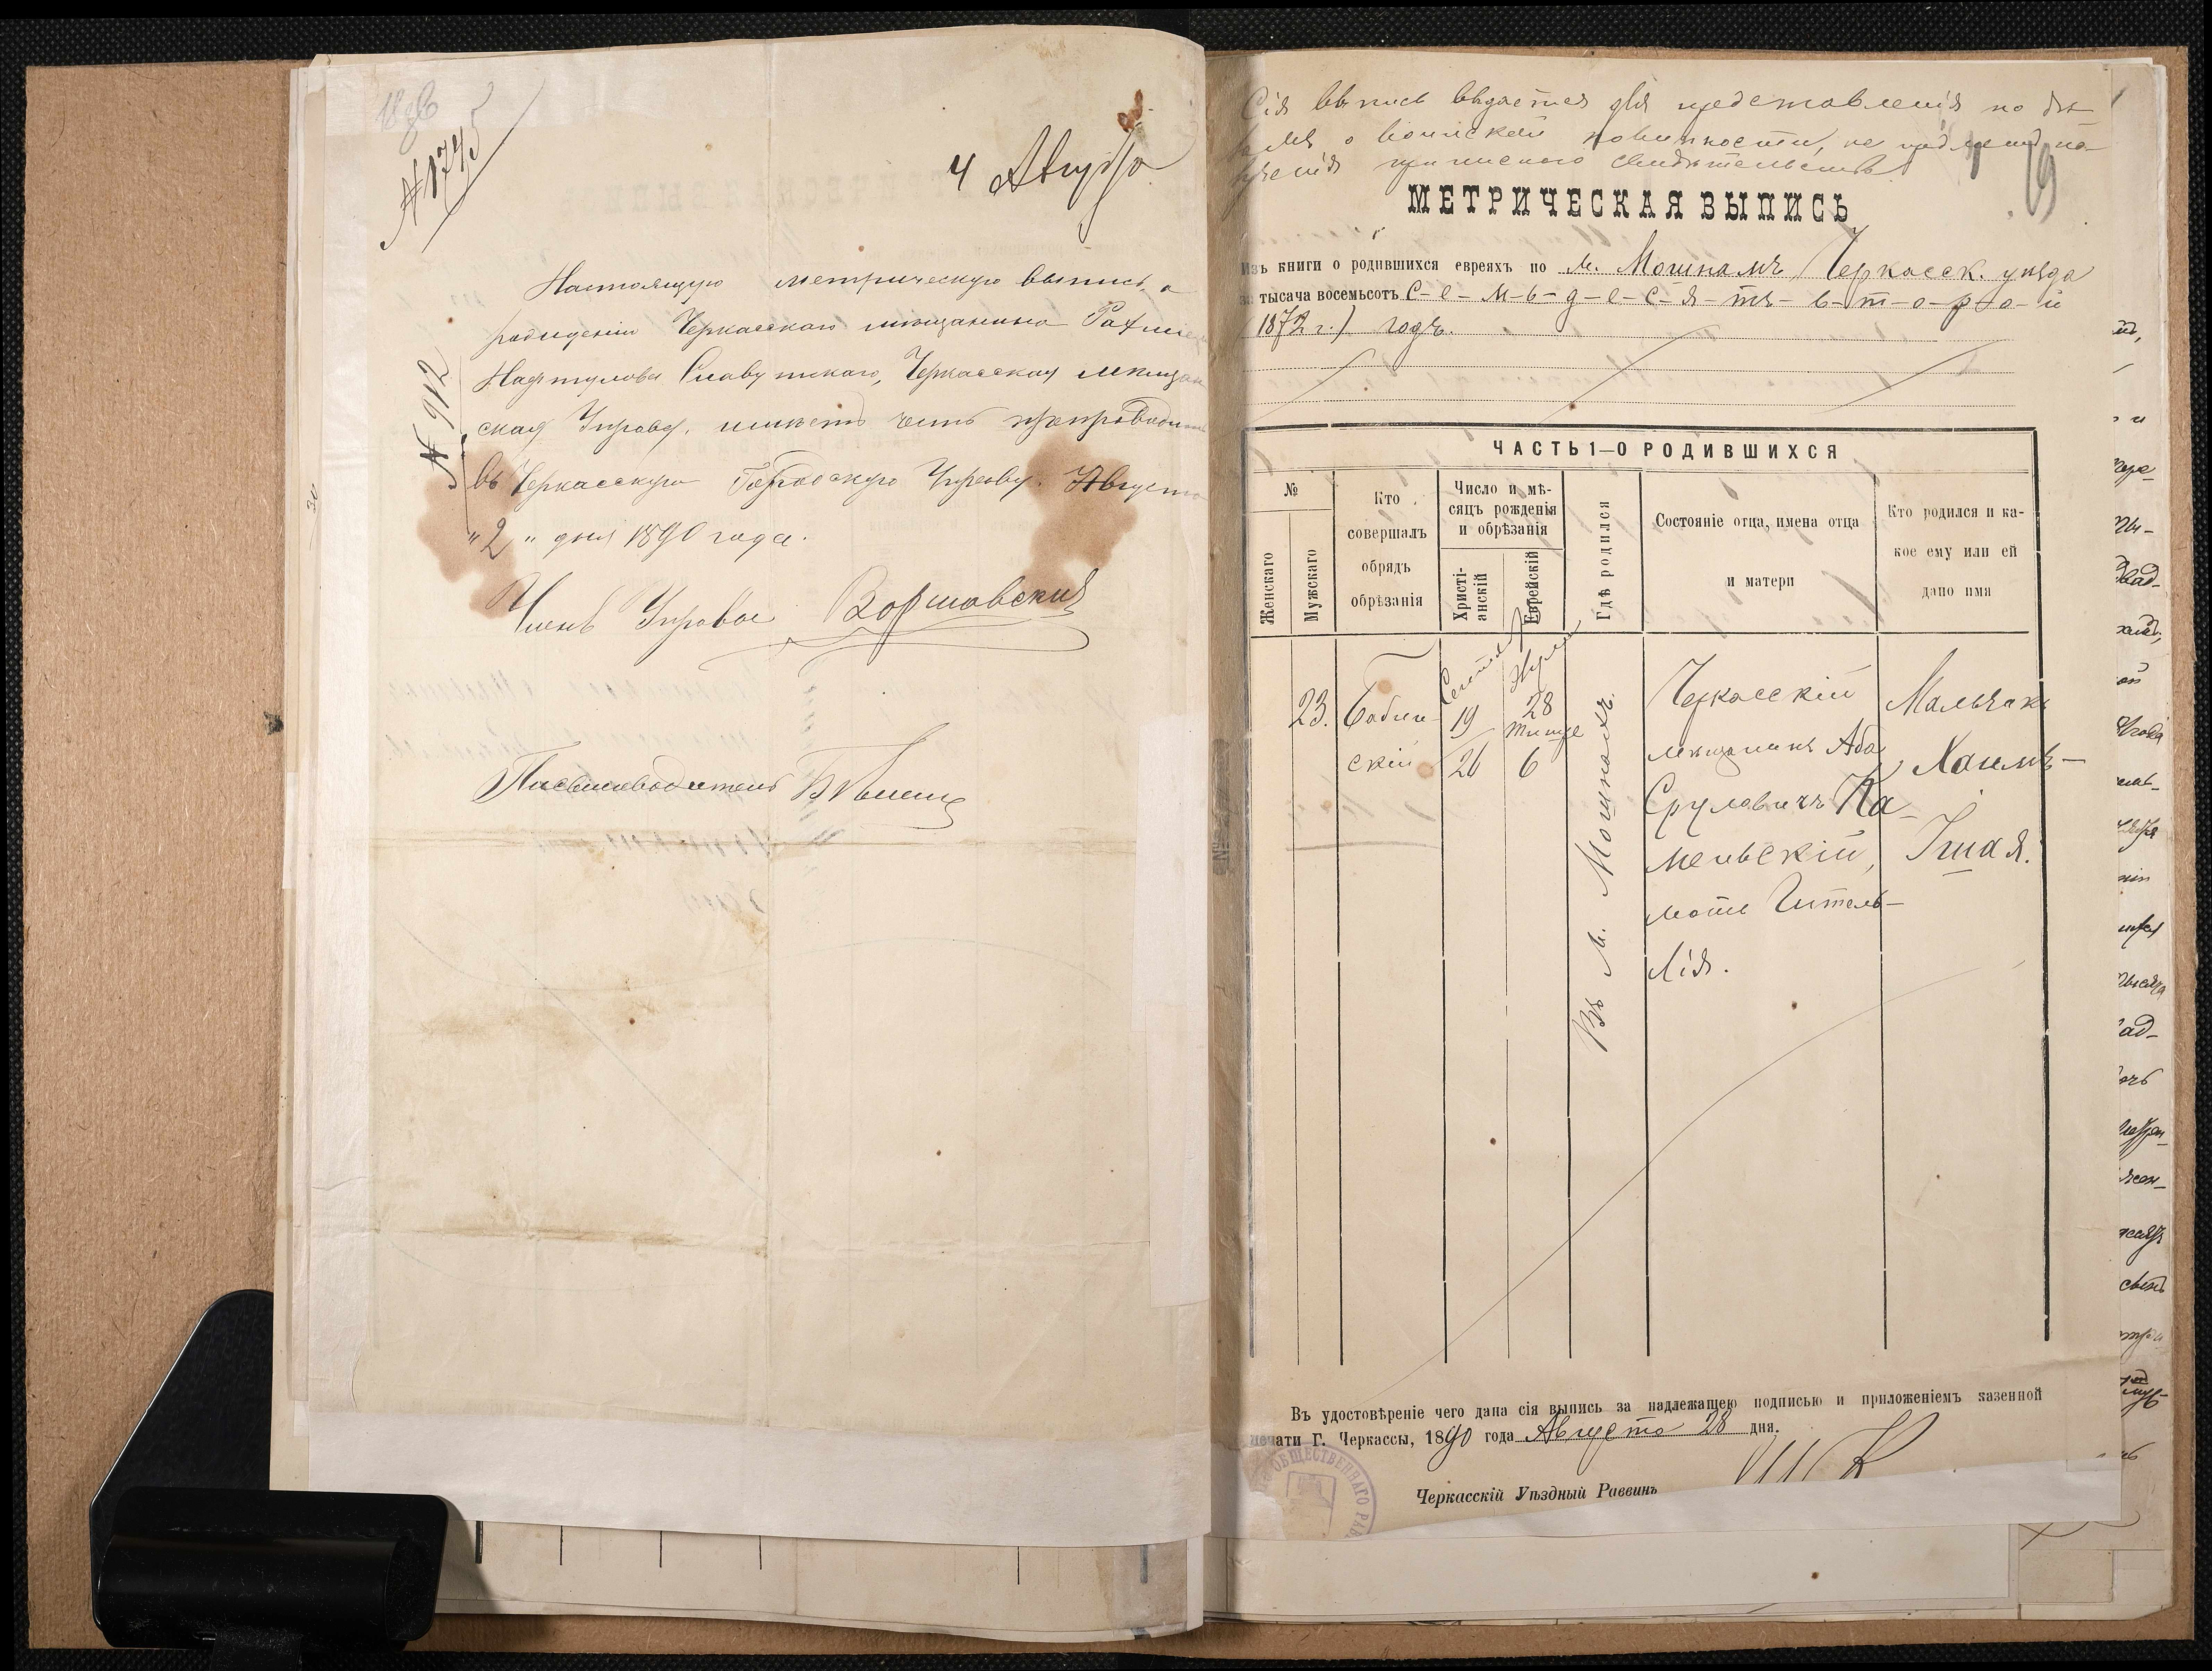 № 1745
4 Августа
Настоящую метрическую выпись о
рождении Черкасскаго мещанина
Нафтулова Славутскаго, Черкасская мещан
ская Управа, имеетъ честь препроводить
въ Черкасскую Городскую Управу. Августа
"2" дня 1890 года.
№ 912
Членъ Управы Воршавскій
Письмоводитель
Сія выпись выдается для представленія по дѣ-
ламъ о воинской повинности, не
приписного свидѣтельства
19
МЕТРИЧЕСКАЯ ВЫПИСЬ
Изъ книги о родившихся евреяхъ по м. Мошнамъ Черкасск. уѣзда
за тысяча восемьсотъ с-е-м-ь-д-е-с-я-тъ- в-т-о-р-о-й
1872 г.) годъ.
ЧАСТЬ 1—О РОДИВШИХСЯ
№
Женскаго
Мужскаго
Кто совершалъ обрядъ обрѣзанія
Число и мѣ-
сяцъ рожденія
и обрѣзанія
Христі-
анскій
Еврейскій
Гдѣ родился
Состояніе отца, имена отца
и матери
Кто родился и ка-
кое ему или ей
дано имя
23.
Бабин-
скій
19
26
28
Тишре
6
Въ м. Мошнахъ.
Черкасскій
мещанинъ Аба
Сруловичъ Ка-
меньскій,
мать Гитель-
Лія.
Мальчикъ
Хаимъ-
Ішая.
Въ удостовѣреніе чего дана сія выпись за надлежащею подписью и приложеніемъ казенной
печати Г. Черкассы, 1890 года Августа 28 дня.
Черкасскій Уѣздный Раввинъ
ОБЩЕСТВЕННАГО РАВ